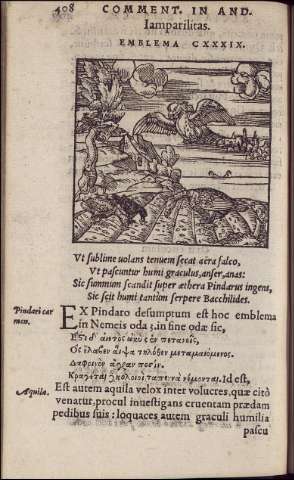 408 COMMENT. IN AND.
Iamparilitas.
EMBLEMA CXXXIX.
Vt sublime uolans tenuem secat aëra falco,
Vt pascuntur humi graculus, anser, anas:
Sic summum scandit super æthera Pindarus ingens,
Sic scit humi tantùm serpere Bacchilides.
Pindari car
men.
EX Pindaro desumptum est hoc emblema
in Nemeis oda 3. in fine odæ sic,
Ὃς ἔλαβεν αἶψα τηλόθεν μεταμαιόμενος.
Δαφοινὸν ἄγραν ποσίν.
Κραγέται κολοιοὶ ταπεινὰ νέμονται. Id est,
Aquila.
Est autem aquila velox inter volucres, quæ citò
venatur, procul inuestigans cruentam prædam
pedibus suis: loquaces autem graculi humilia
pascu